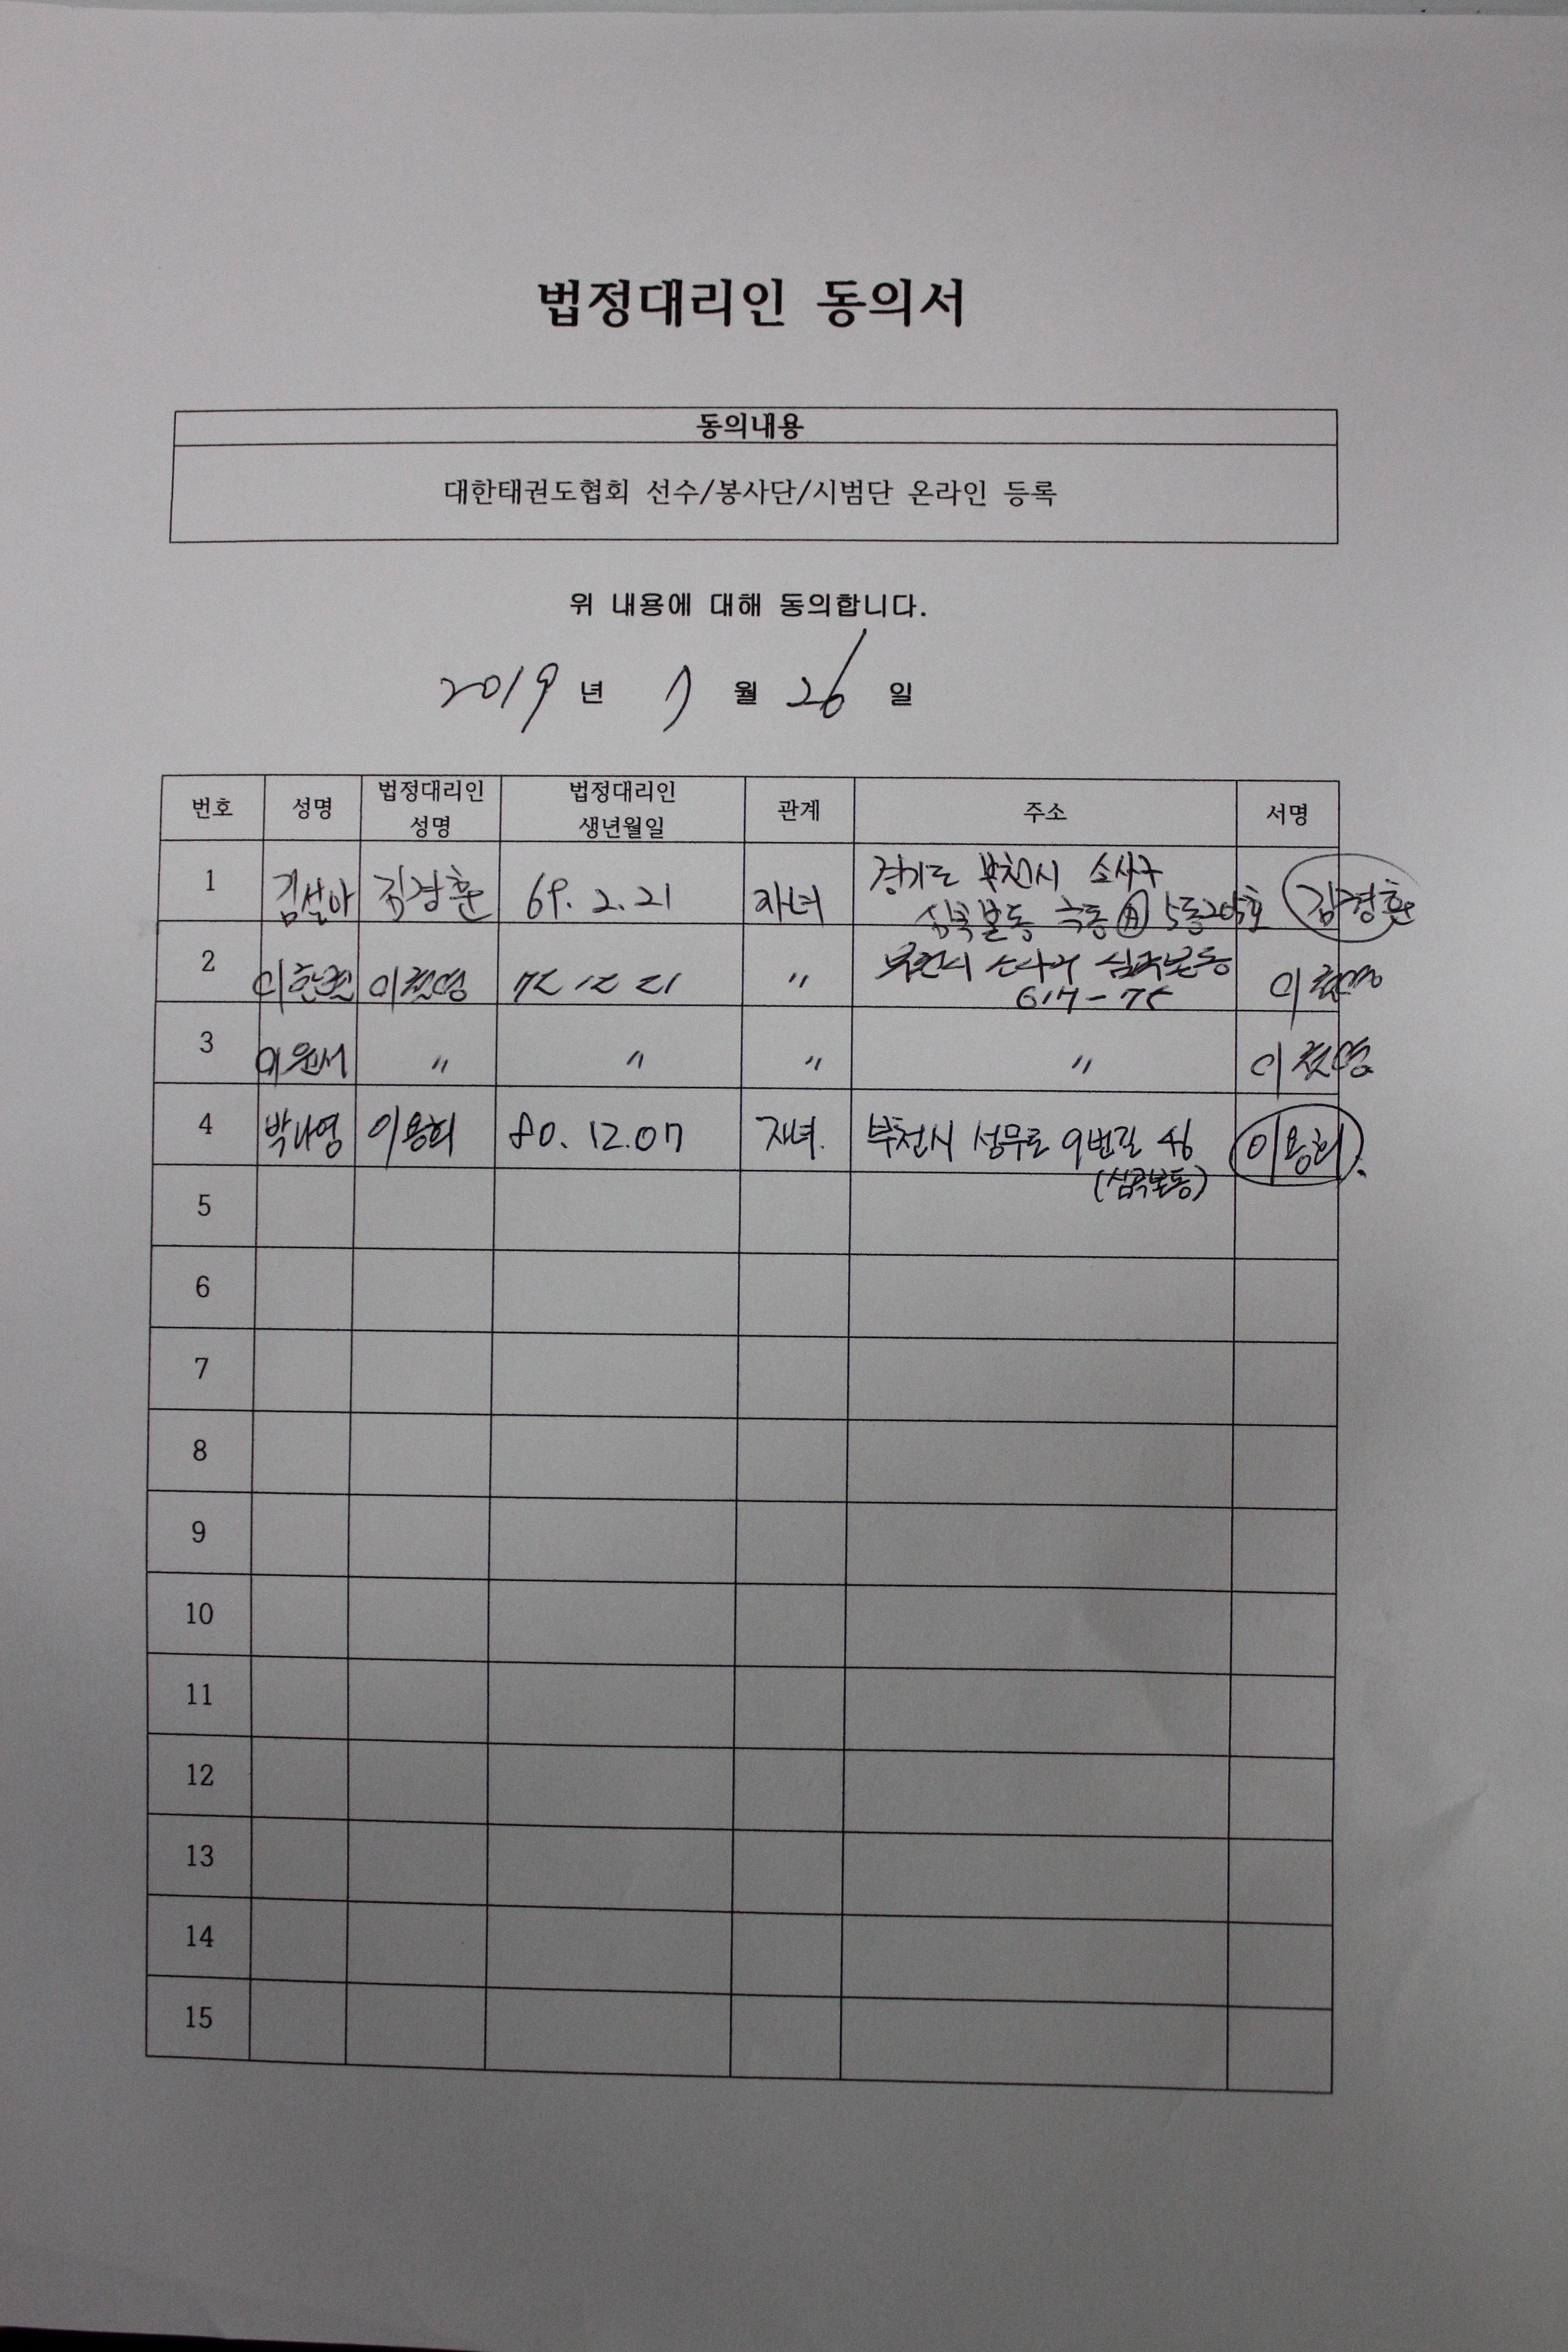 법정대리인 동의서
동의내용
대한태권도협회 선수/봉사단/시범단 온라인 등록
위 내용에 대해 동의합니다.
2019 년 7 월 26 일
번호 성명 법정대리인 성명 법정대리인 생년월일 관계 주소 서명
1 김설아 김경훈 69. 2. 21 자녀 경기도 부천시 소사구
심곡본동 극동 Ⓐ 5동205호 김경훈
2 72 12 21 〃 부천시 소사구 심곡본동
617-75
3 이원서 〃 〃 〃 〃
4 박나영 이용희 80. 12. 07 자녀. 부천시 성무로 9번길 46 이용희.
(심곡본동)
5
6
7
8
9
10
11
12
13
14
15